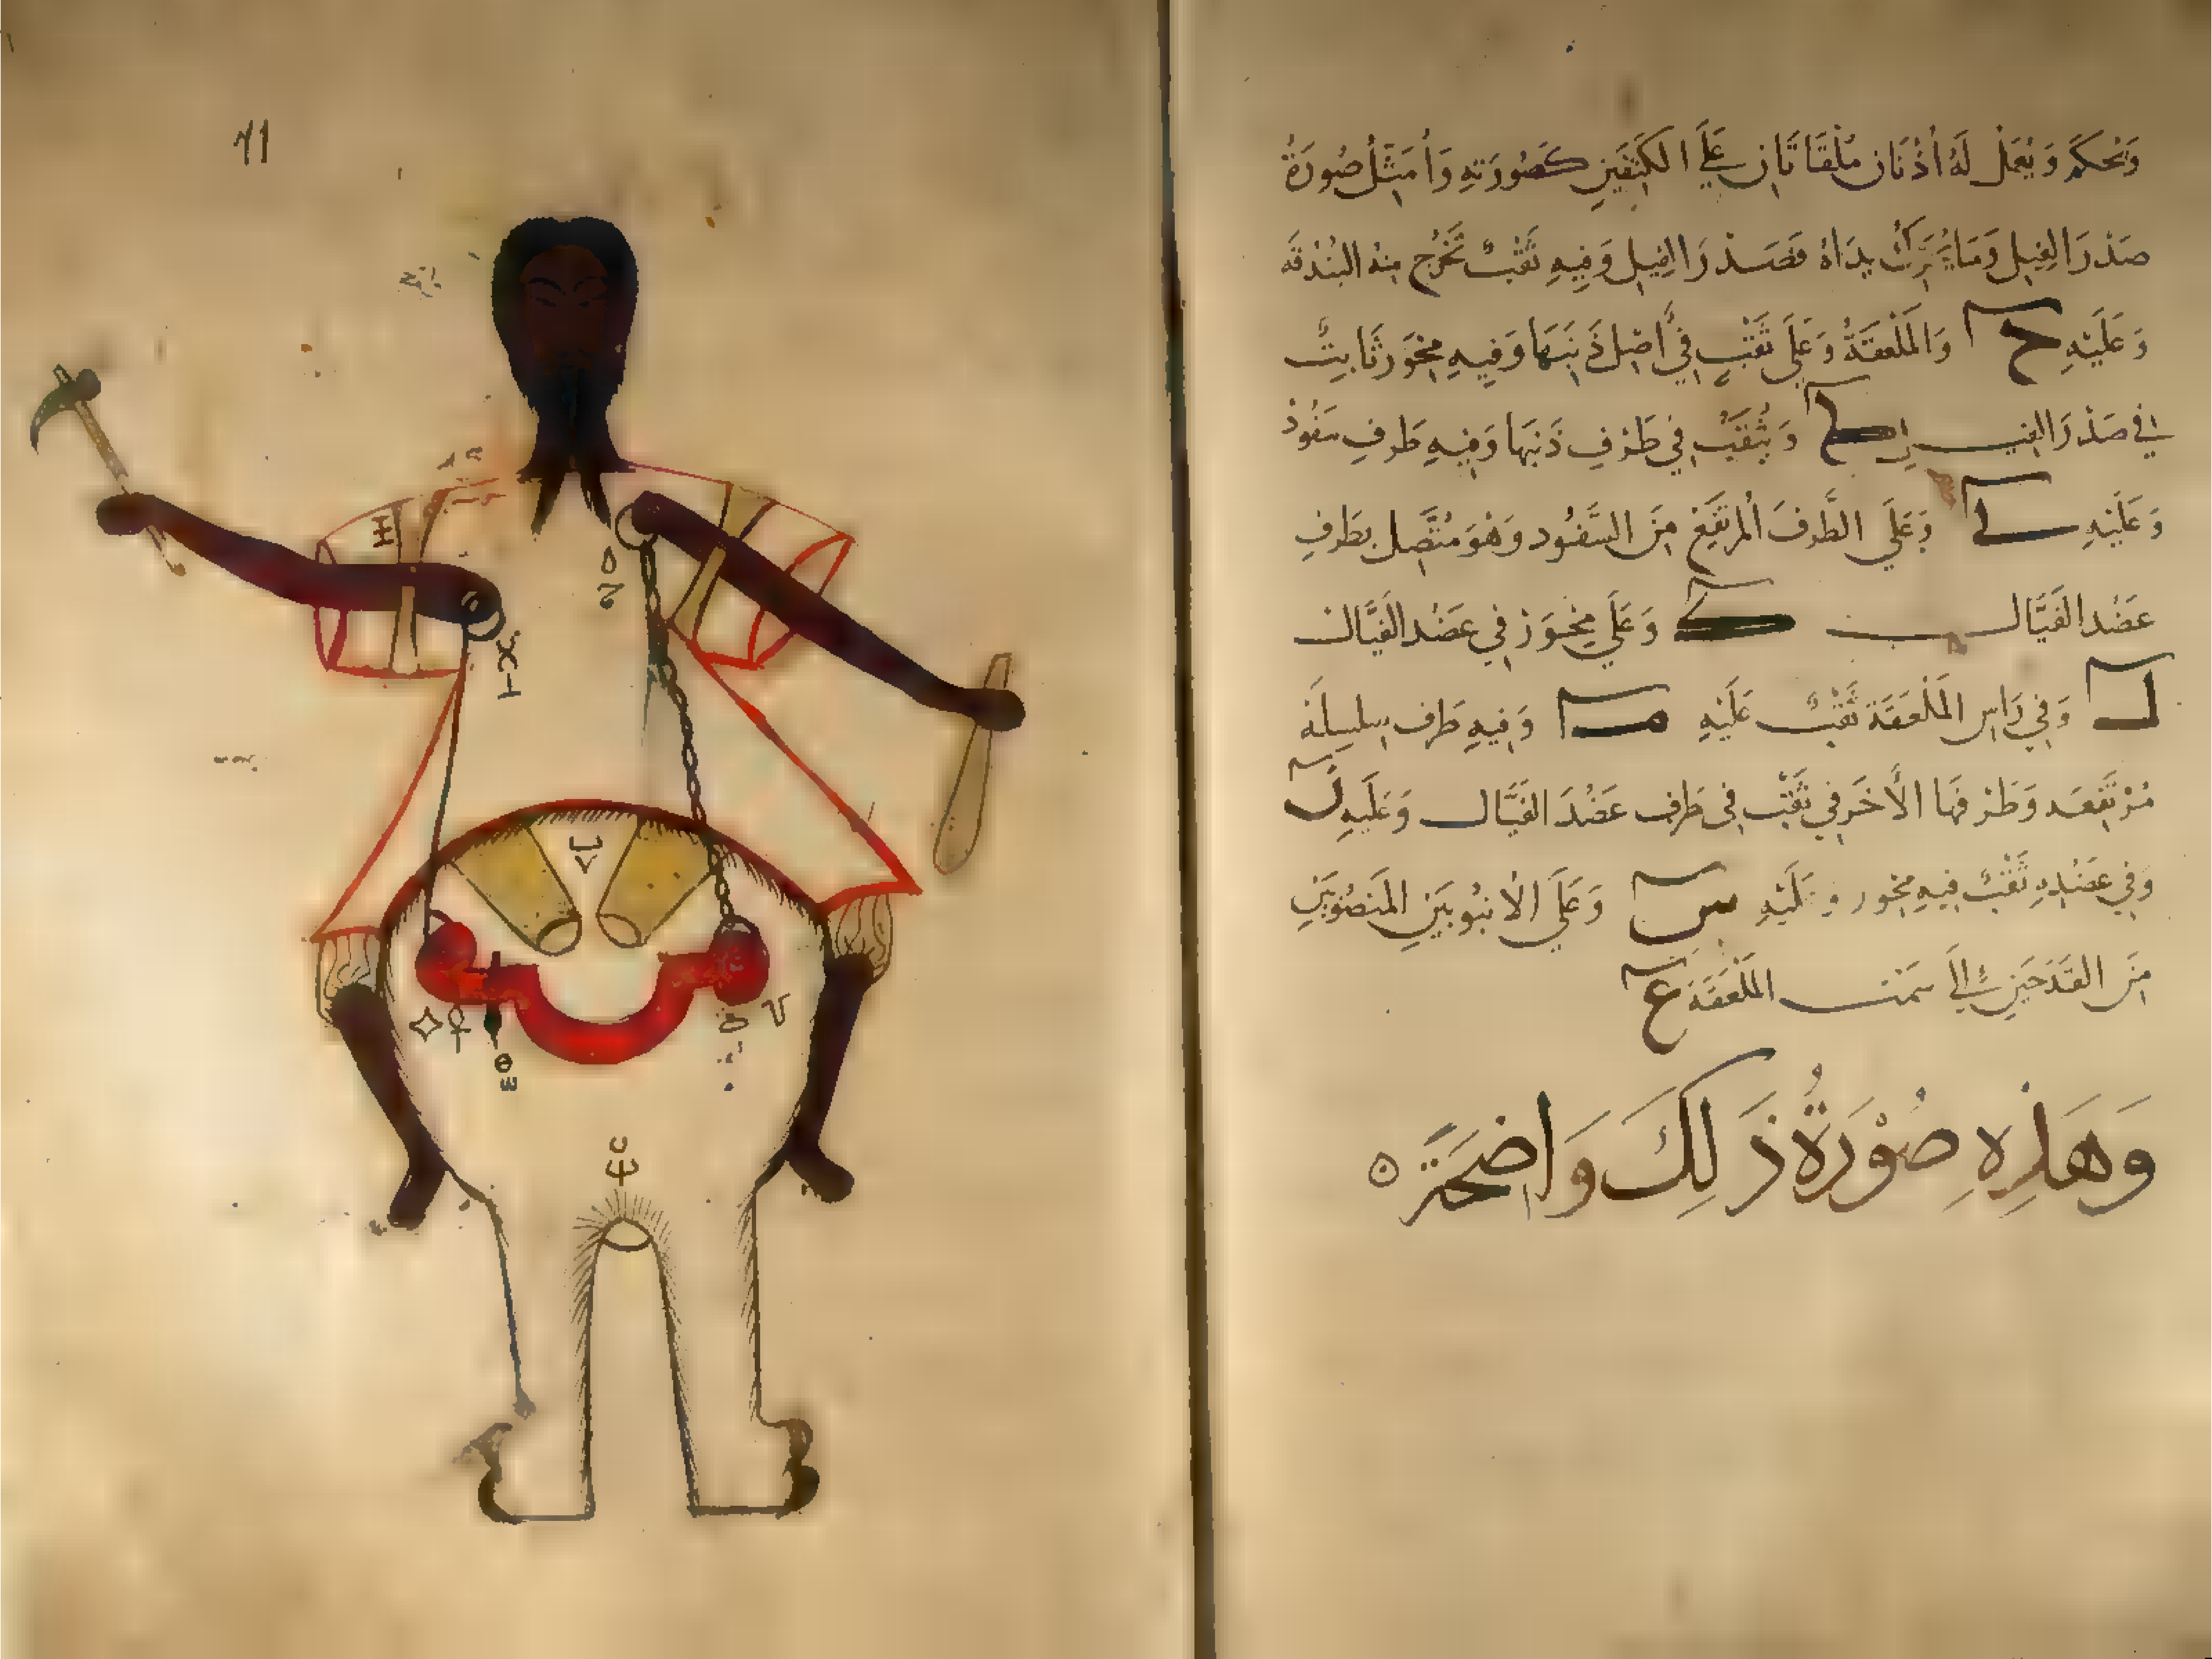 وَيُحْكَمُ وَيُعْمَلْ لَهُ اُذْنَان مُلْقَا تَانِ عَلَي الكَتِفَيْنِ كَصُورَتِهِ وَاُمَثِّلُ صُورَةُ
صَدْرَ الفِيلِ وَمَا يُحَرَّكُ يَدَاهُ فَصَدْرَ الفِيلِ وَفِيهِ ثَقْبٌ تَخْرُج مِنهُ البُنْدقَه
وَعَلَيْهِ ح وَالمَلْعَقَةُ وَعَلَي ثَقْبٍ فِي اَصْلِ ذَنَبَهَا وَفِيهِ مِحْوَر ثَابِتٌ
فِي صَدْرَ الفِيلِ ط وَيُثْقَبُ فِي طَرْفِ ذَنَبِهَا وَفِيهِ طَرفِ سَفُودْ
وَعَلَيْهِ ي وَعَلَي الطَّرفَ المُرتَفِع مِنَ السَّفُود وَهْوَ مُتَّصِل بطَرفِ
عَضُد الفَيَّال ك وَعَلَي مِحْوَرْ فِي عَضُد الفَيَّال
ل وَفِي رَاسِ المَلْعَقَة ثَقْبٌ عَلَيْهِ م وَفِيهِ طَرف سِلسِلَة
مُرْتَفِعَه وَطَرْفهَا الأَخَر فِي ثَقْب فِى طَرفِ عَضُدَ الفَيَّال وَعَلَيهِ ن
وَفِي عَضُدِهِ ثَقْبٌ فِيهِ مِحْور وعَلَيْهِ س وَعَلَي الاُنبُوبَيَنِ المَنصُوبَيَنِ
مِنَ القَدَحَيَنِ اِلَي سَمْت المَلعَقَة ع
وَهَذِهِ صُوْرَةُ ذَلِكَ وَاضِحَة ه
٦١